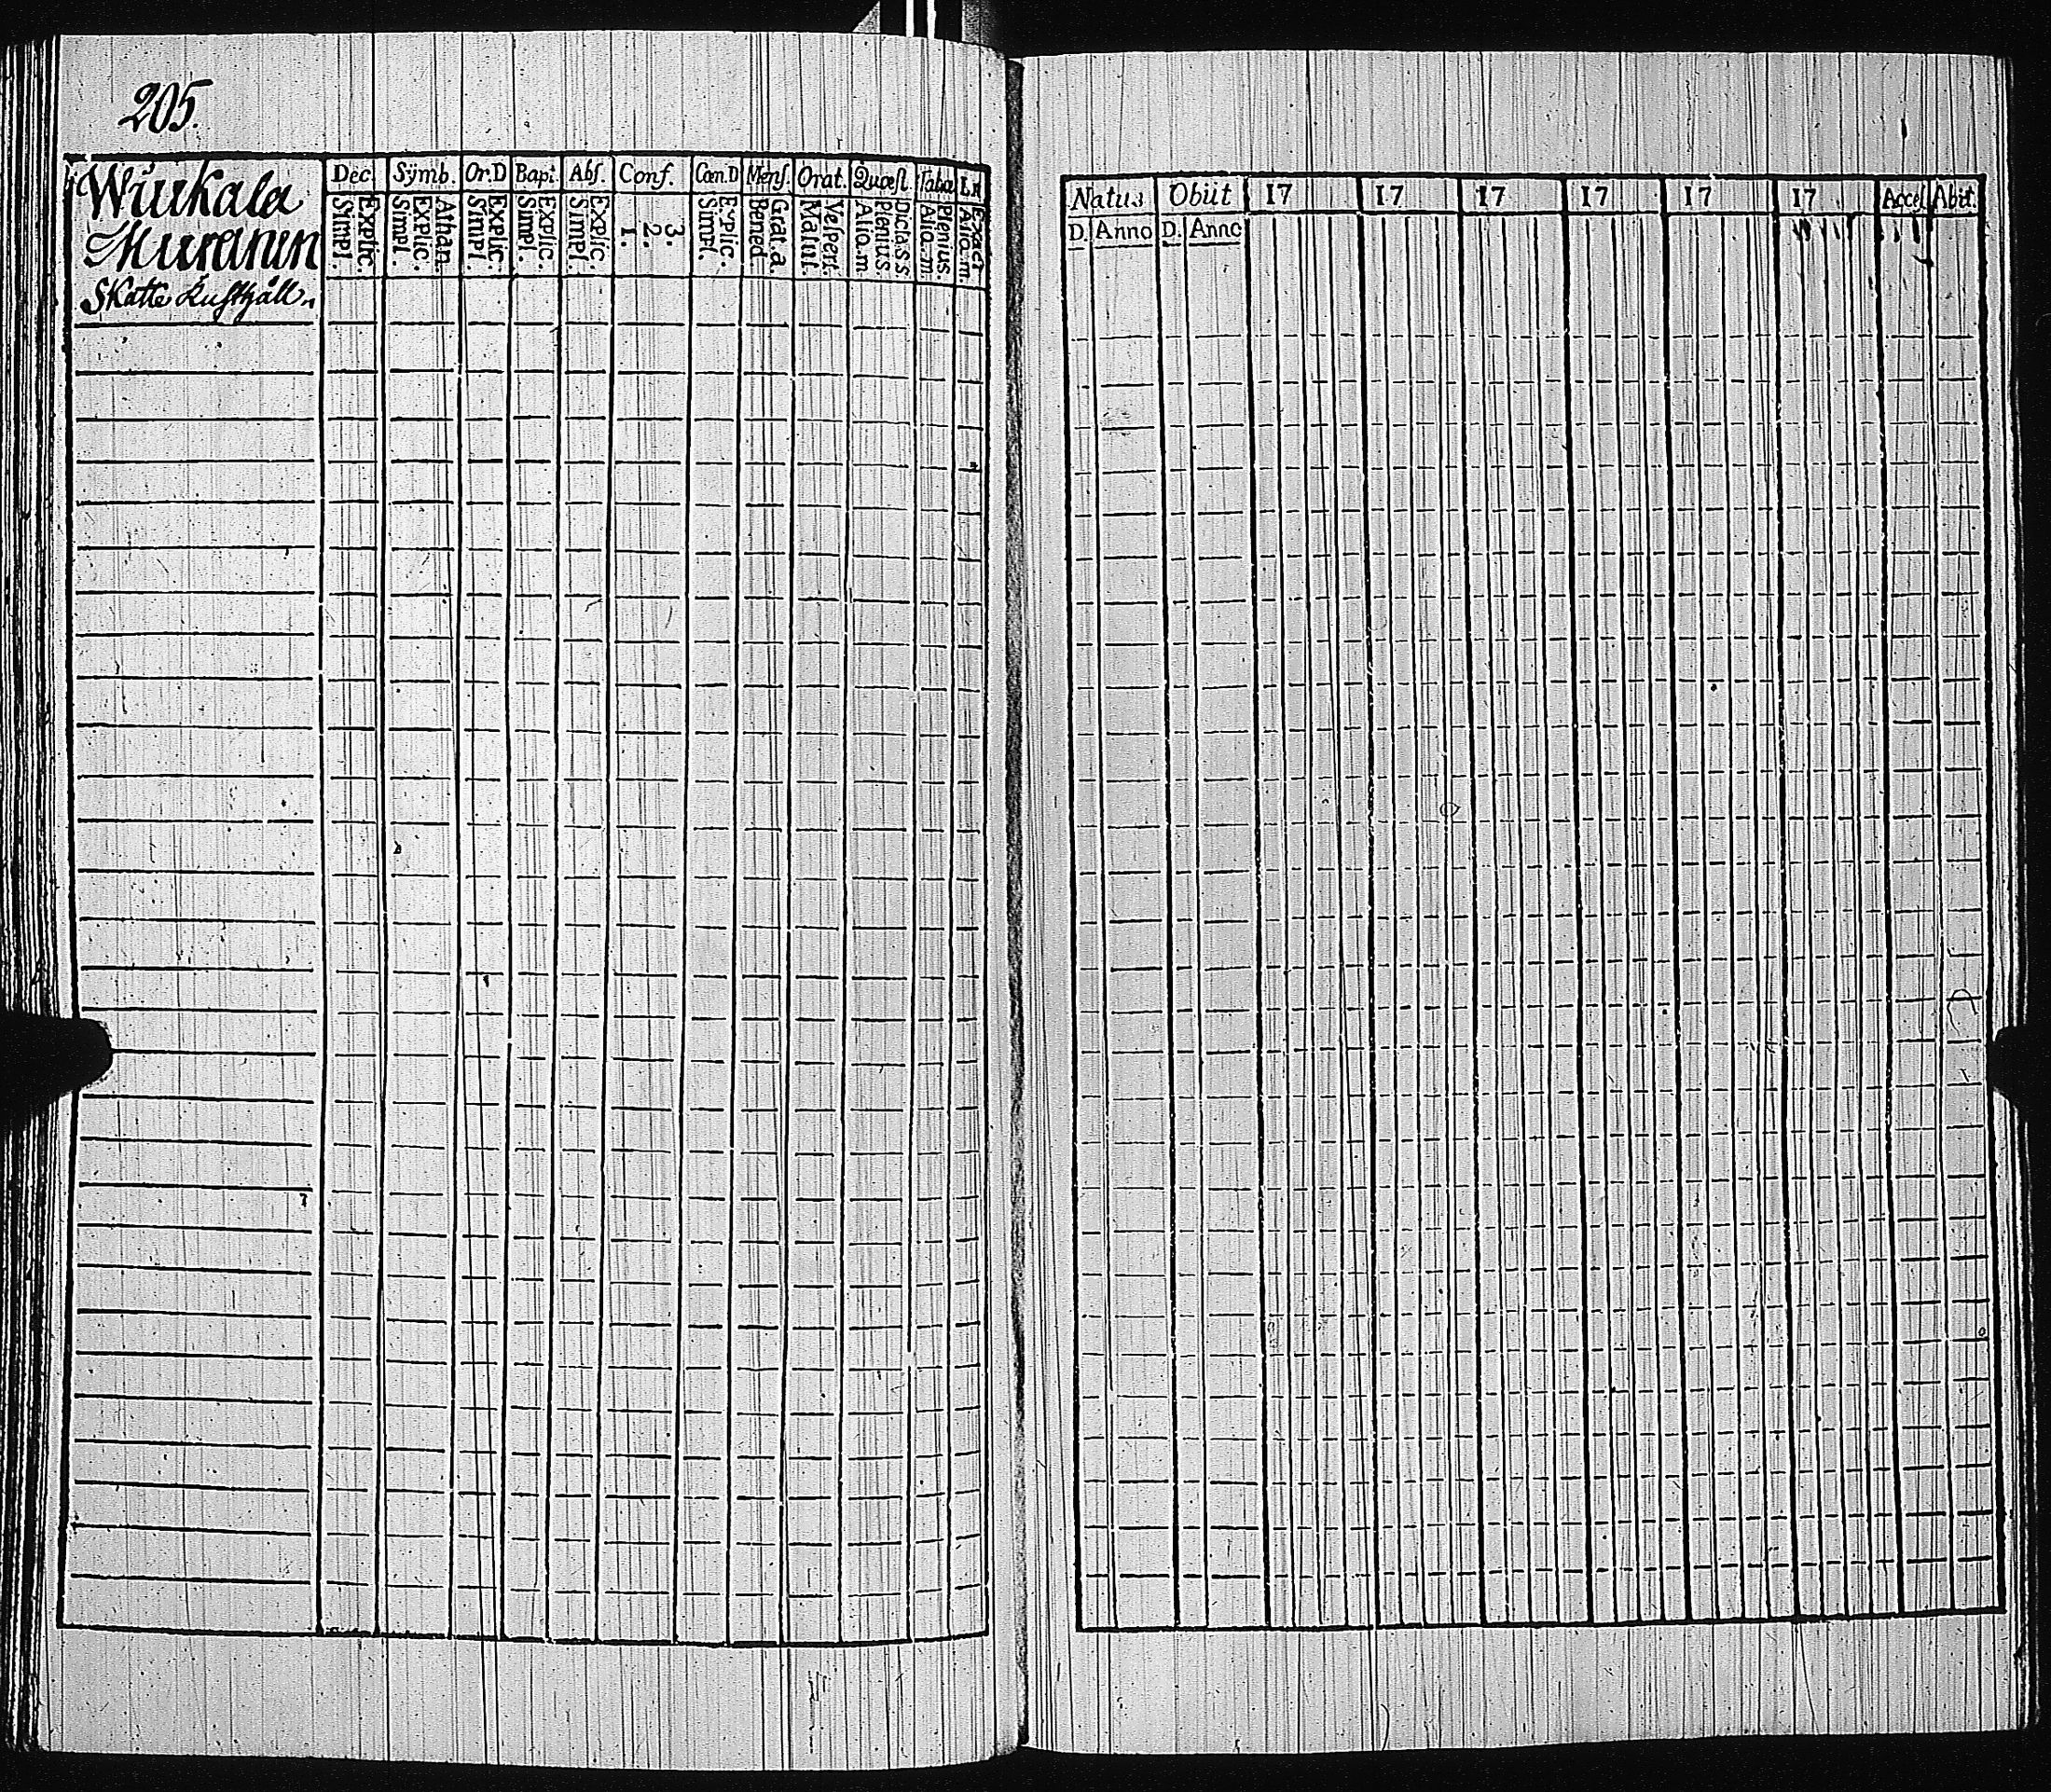 205.
Wiukala
Muranen
Skatte Rusthåll.
Dec. Sÿmb. Or.D Bapt. Abs. Conf. Cœn.D Mens. Orat. Quæst. Taba
Explic.
Simpl.
Athan.
Explic.
Simpl.
Explic.
Simpl.
Explic.
Simpl.
Explic.
Simpl.
3.
2.
1.
Explic.
Simpl.
Grat. a
Bened.
Vespert.
Matut.
Dicta. s.s
Plenius.
Alio. m
Plenius.
Alio. m.
Exact
Alio. m.
Natus Obiit 17 17 17 17 17 17 Accel. Abit.
D. Anno D. Anno